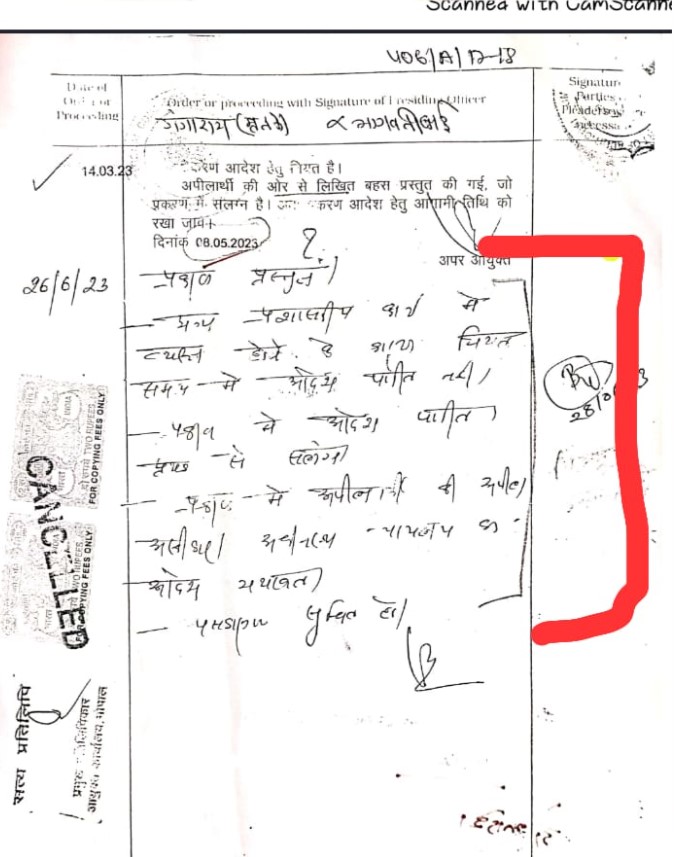 Scanned with CamScanne
406/A/17-18
Date of
Order or
Proceeding
Order or proceeding with Signature of Presiding Officer
Signatur
Parties
Pleaders
गंगाराम (मृतक) भागवतीबाई
14.03.23
प्रकरण आदेश हेतु नियत है।
अपीलार्थी की ओर से लिखित बहस प्रस्तुत की गई, जो
प्रकरण में संलग्न है। अतः प्रकरण आदेश हेतु आगामी तिथि को
रखा जाव।
दिनांक 08.05.2023
अपर आयुक्त
26/6/23
प्रकरण प्रस्तुत।
— अन्य प्रशासकीय कार्य में
व्यस्त होने के कारण नियत
समय में आदेश पारित नहीं।
— प्रकरण में आदेश पारित।
पृथक से संलग्न।
— प्रकरण में अपीलार्थी की अपील
अस्वीकार। अधीनस्थ न्यायालय का
आदेश यथावत।
— पक्षकार सूचित हों।
TWO RUPEES
FOR COPYING FEES ONLY
INDIA
CANCELLED
TWO RUPEES
FOR COPYING FEES ONLY
सत्य प्रतिलिपि
प्रमुख प्रतिलिपिकार
आयुक्त कार्यालय, भोपाल